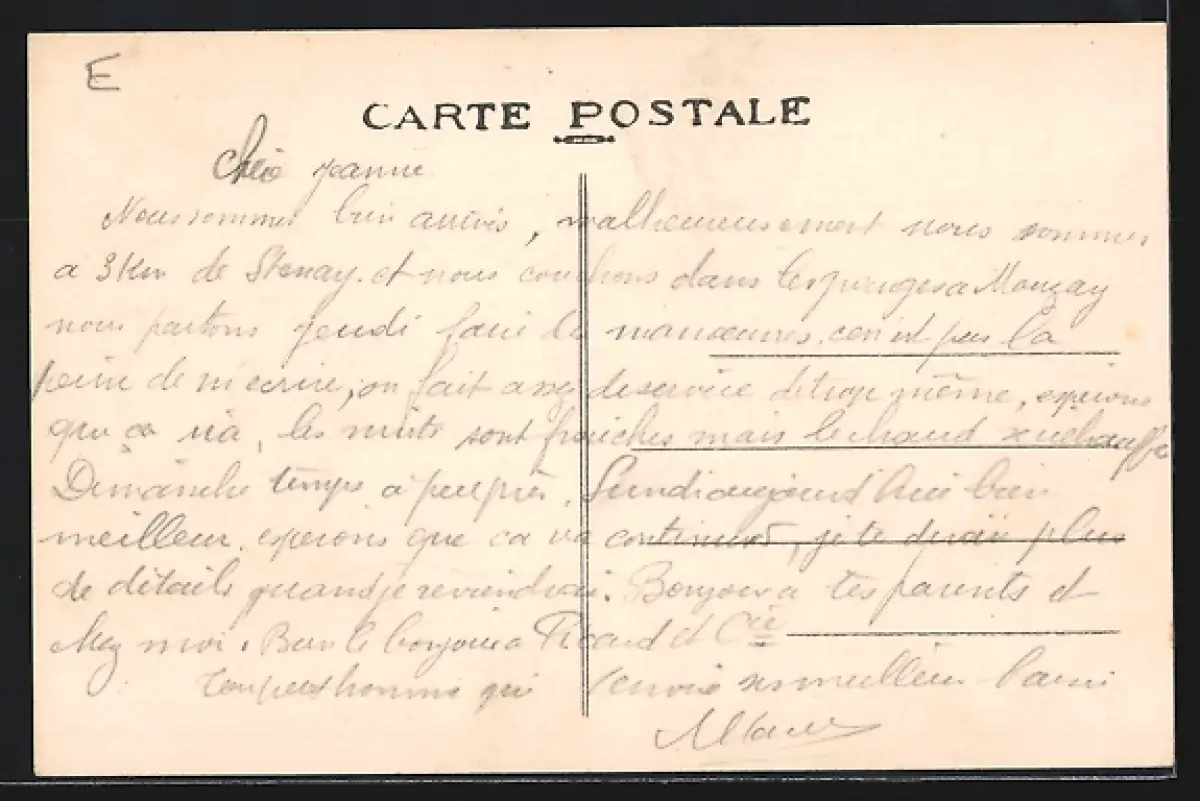 E
CARTE POSTALE
Chère Jeanne
Nous sommes bien arrivés, malheureusement nous sommes
a 3 Km de Stenay. et nous couchons dans les a Mouzay
nous partons jeudi faire les manœuvres. ce n'est pas la
peine de m'écrire, on fait assez de service de trop même, espérons
que ca ira, les nuits sont fraiches mais le chaud
Dimanche temps a peu près. Lundi aujourd'hui bien
meilleur. esperons que ca va continuer, je te dirai plus
de détails quand je reviendrai. Bonjour a tes parents et
chez moi. Bien le bonjour a Picard et Cie
Ton petit homme qui t'envoie ses meilleurs baisers